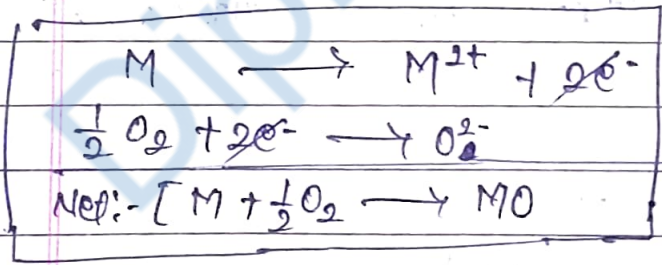 M → M²⁺ + 2e⁻
½ O₂ + 2e⁻ → O²⁻
Net:- [ M + ½ O₂ → MO